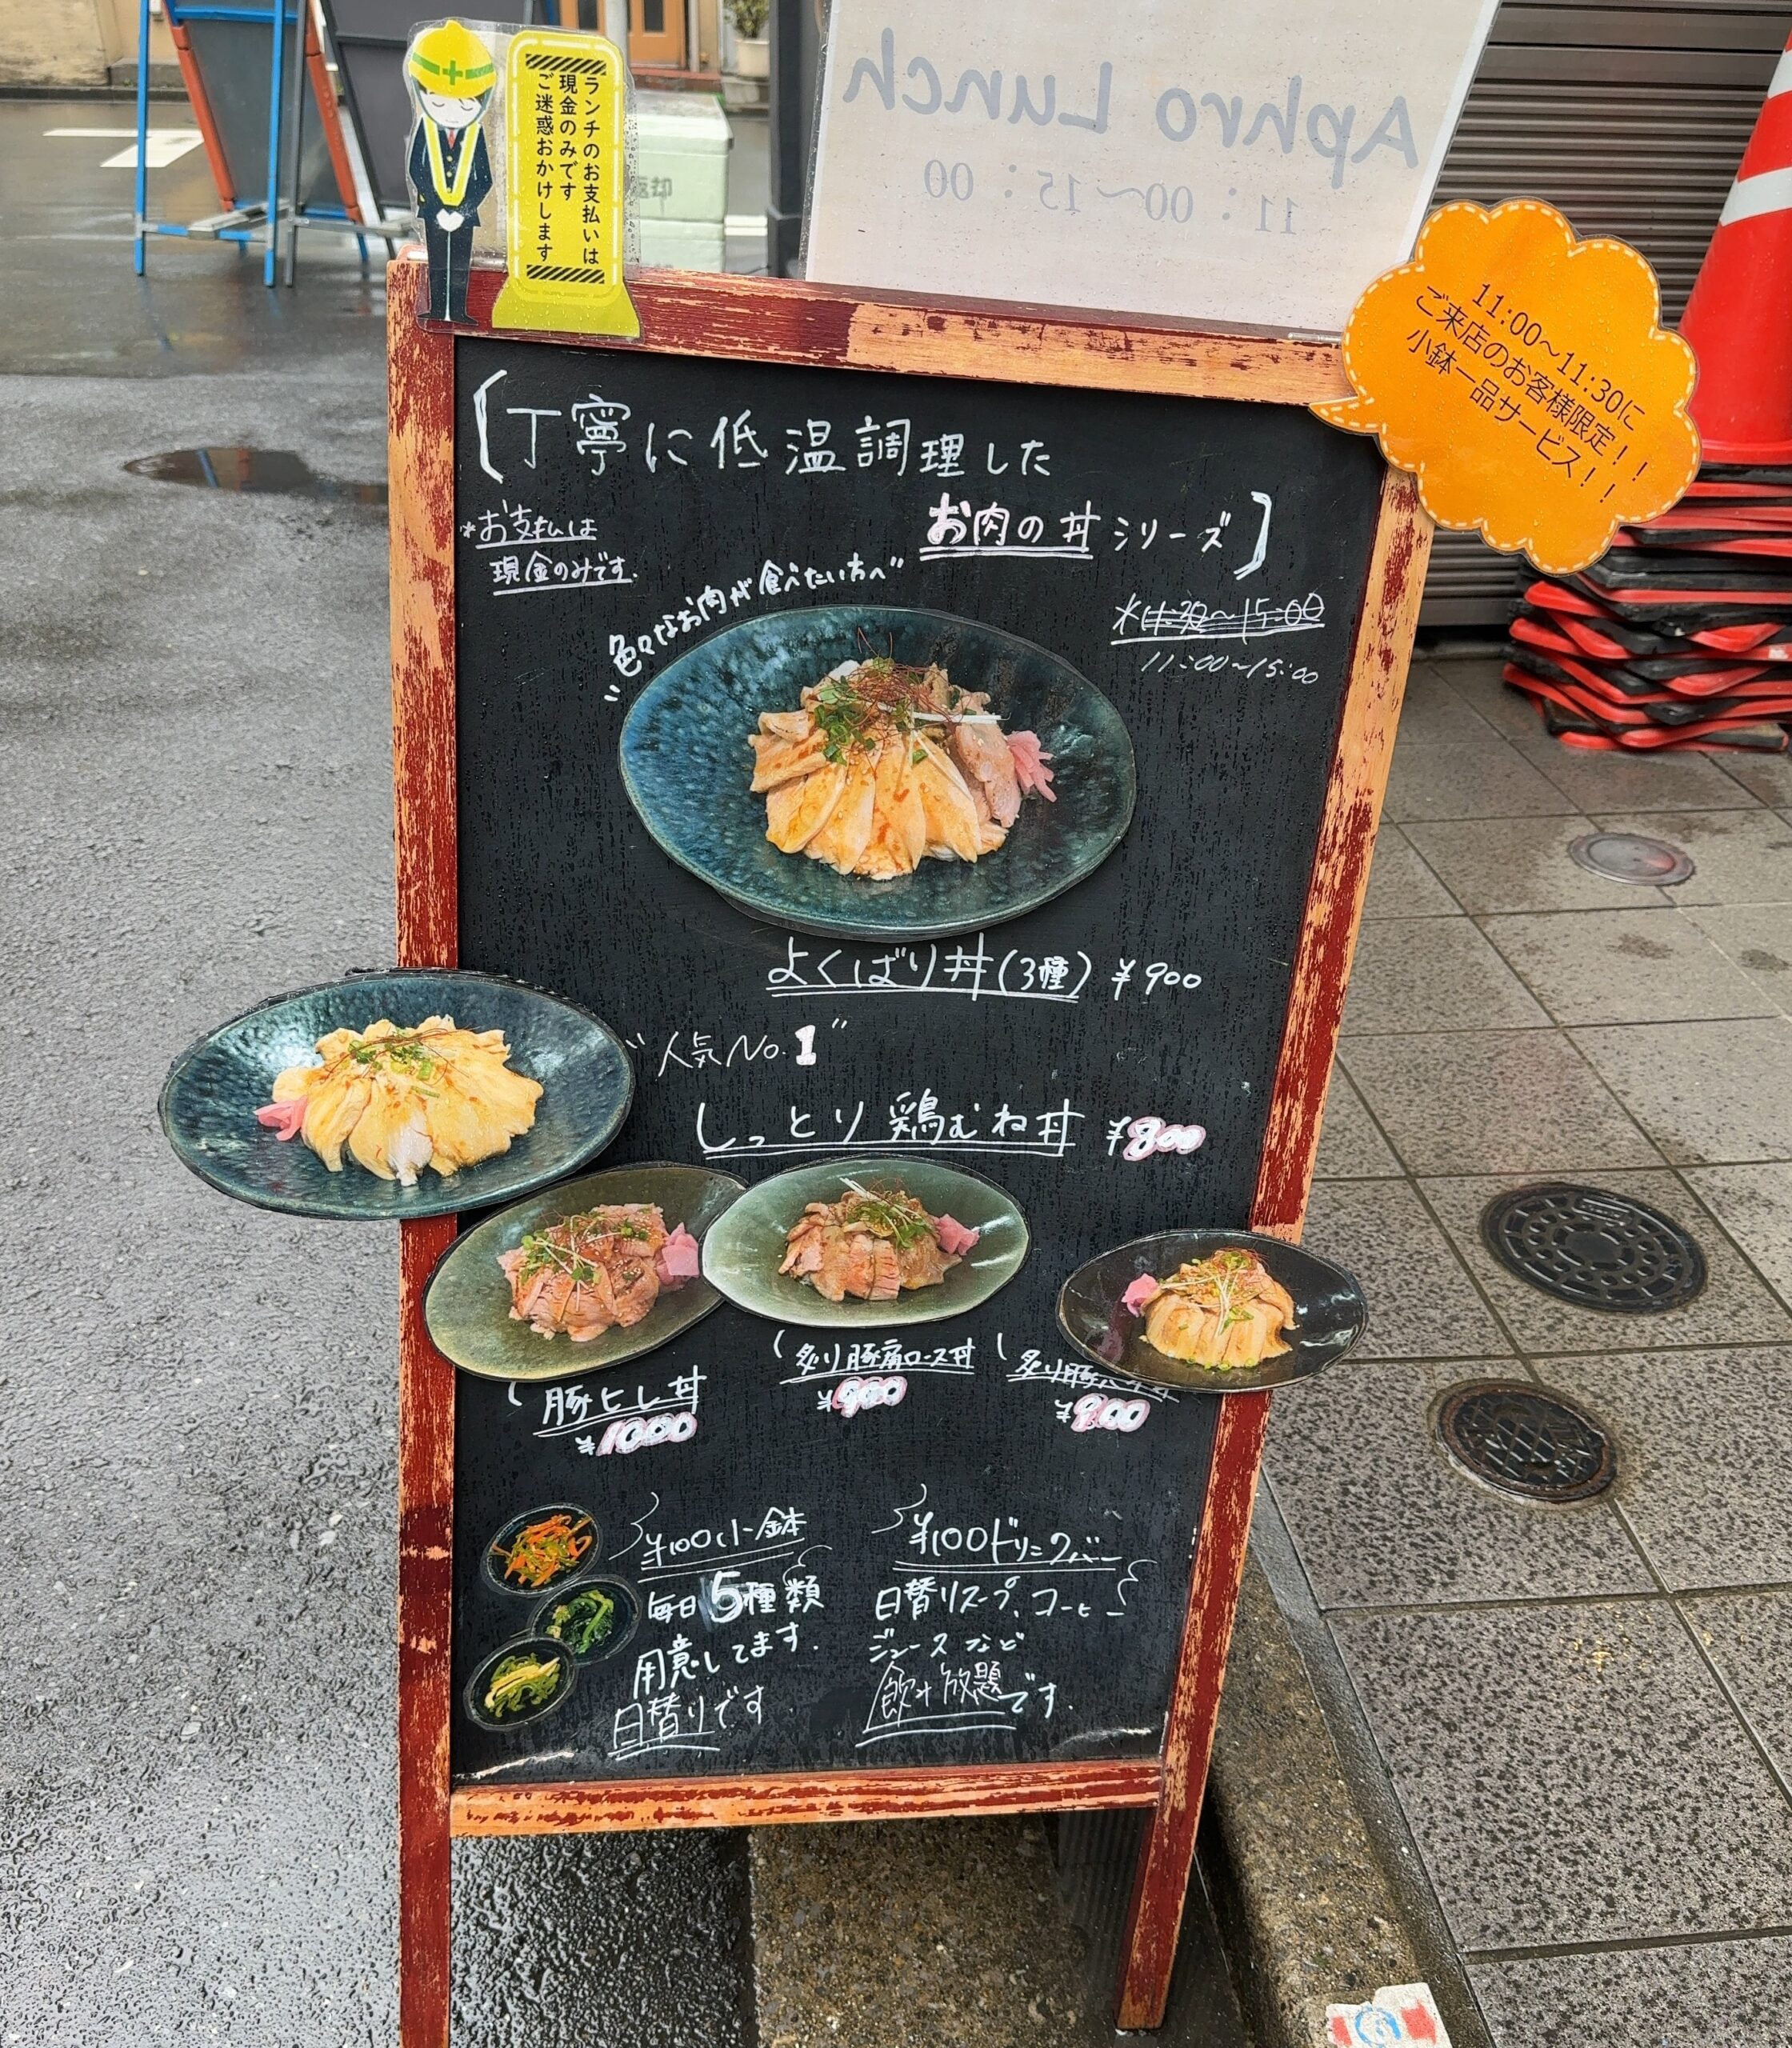 ランチのお支払いは
現金のみです
ご迷惑おかけします
返却
Aphro Lunch
11:00〜15:00
11:00〜11:30に
ご来店のお客様限定！！
小鉢一品サービス！！
[丁寧に低温調理した
お肉の丼シリーズ]
*お支払は
現金のみです.
*11:30〜15:00
11:00〜15:00
"色々なお肉が食べたい方へ"
よくばり丼(3種) ¥900
"人気No.1"
しっとり鶏むね丼 ¥800
豚ヒレ丼
¥1000
炙り豚肩ロース丼
¥900
炙り豚
¥900
¥100小鉢
毎日5種類
用意してます.
日替りです
¥100ドリンクバー
日替りスープ、コーヒー
ジュースなど
飲み放題です.